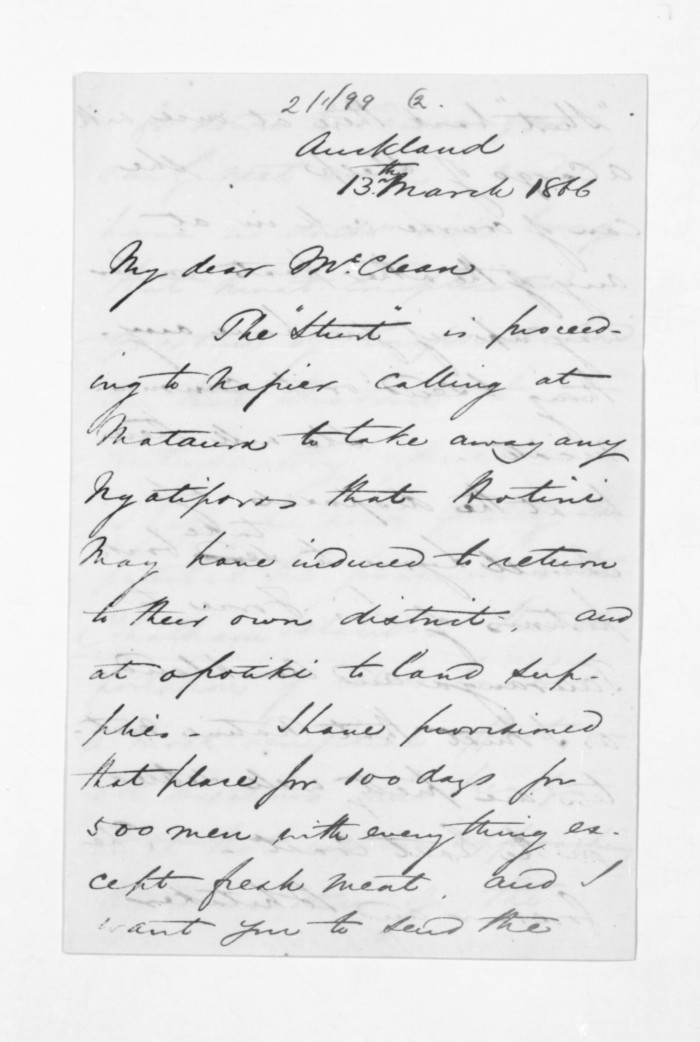 2/1/99 2.
Auckland
13th March 1866
My dear McClean
The "Sturt" is proceed-
ing to Napier calling at
Mataura to take away any
Ngatiporos that Hotini
May have induced to return
to their own district. and
at opotiki to land sup-
plies - I have provisioned
that place for 100 days for
500 men with everything ex-
cept fresh meat. and I
want you to send the